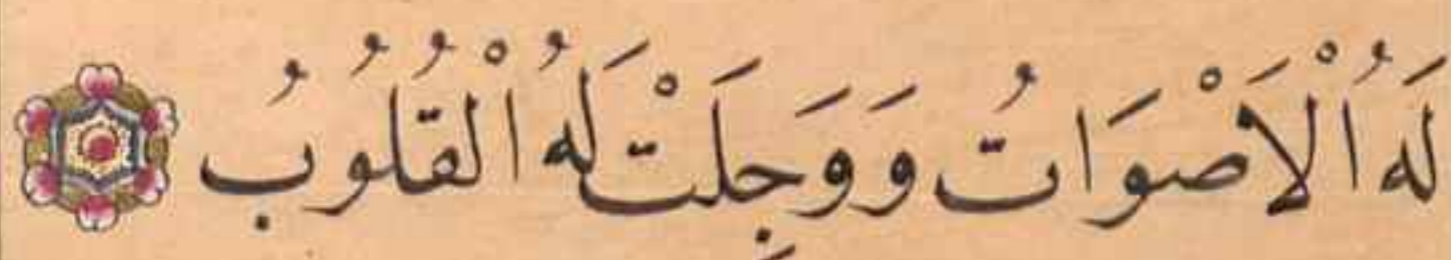 لَهُ الْاَصْوَاتُ وَوَجِلَتْ لَهُ الْقُلُوبُ